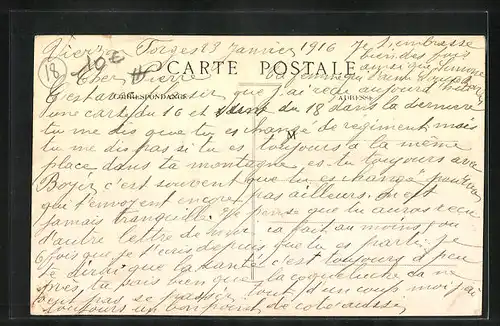 Vierzon Forges 23 Janvier 1916 Je t'embrasse
bien des fois
18 10€ Cher Pierre ainsi que Simone
CARTE POSTALE
CORRESPONDANCE ADRESSE
C'est avec plaisir que j'ai reçu aujourd'hui
une carte du 16 et du 18 dans la dernière
tu me dis que tu es changé de régiment mais
M
tu me dis pas si tu es toujours à la même
place dans ta montagne es-tu toujours avec
Boyer c'est souvent que tu es changé
qu'ils t'envoyent encore pas ailleurs. on est
jamais tranquille. Je pense que tu auras reçu
d'autre lettre de moi ça fait au moins 5 ou
6 fois que je t'écris depuis que tu es parti. Je
te dirai que la santé c'est toujours à peu
près, tu sais bien que la coqueluche ça ne
peut pas se passer tout d'un coup moi j'ai
toujours un bon point de côté aussi